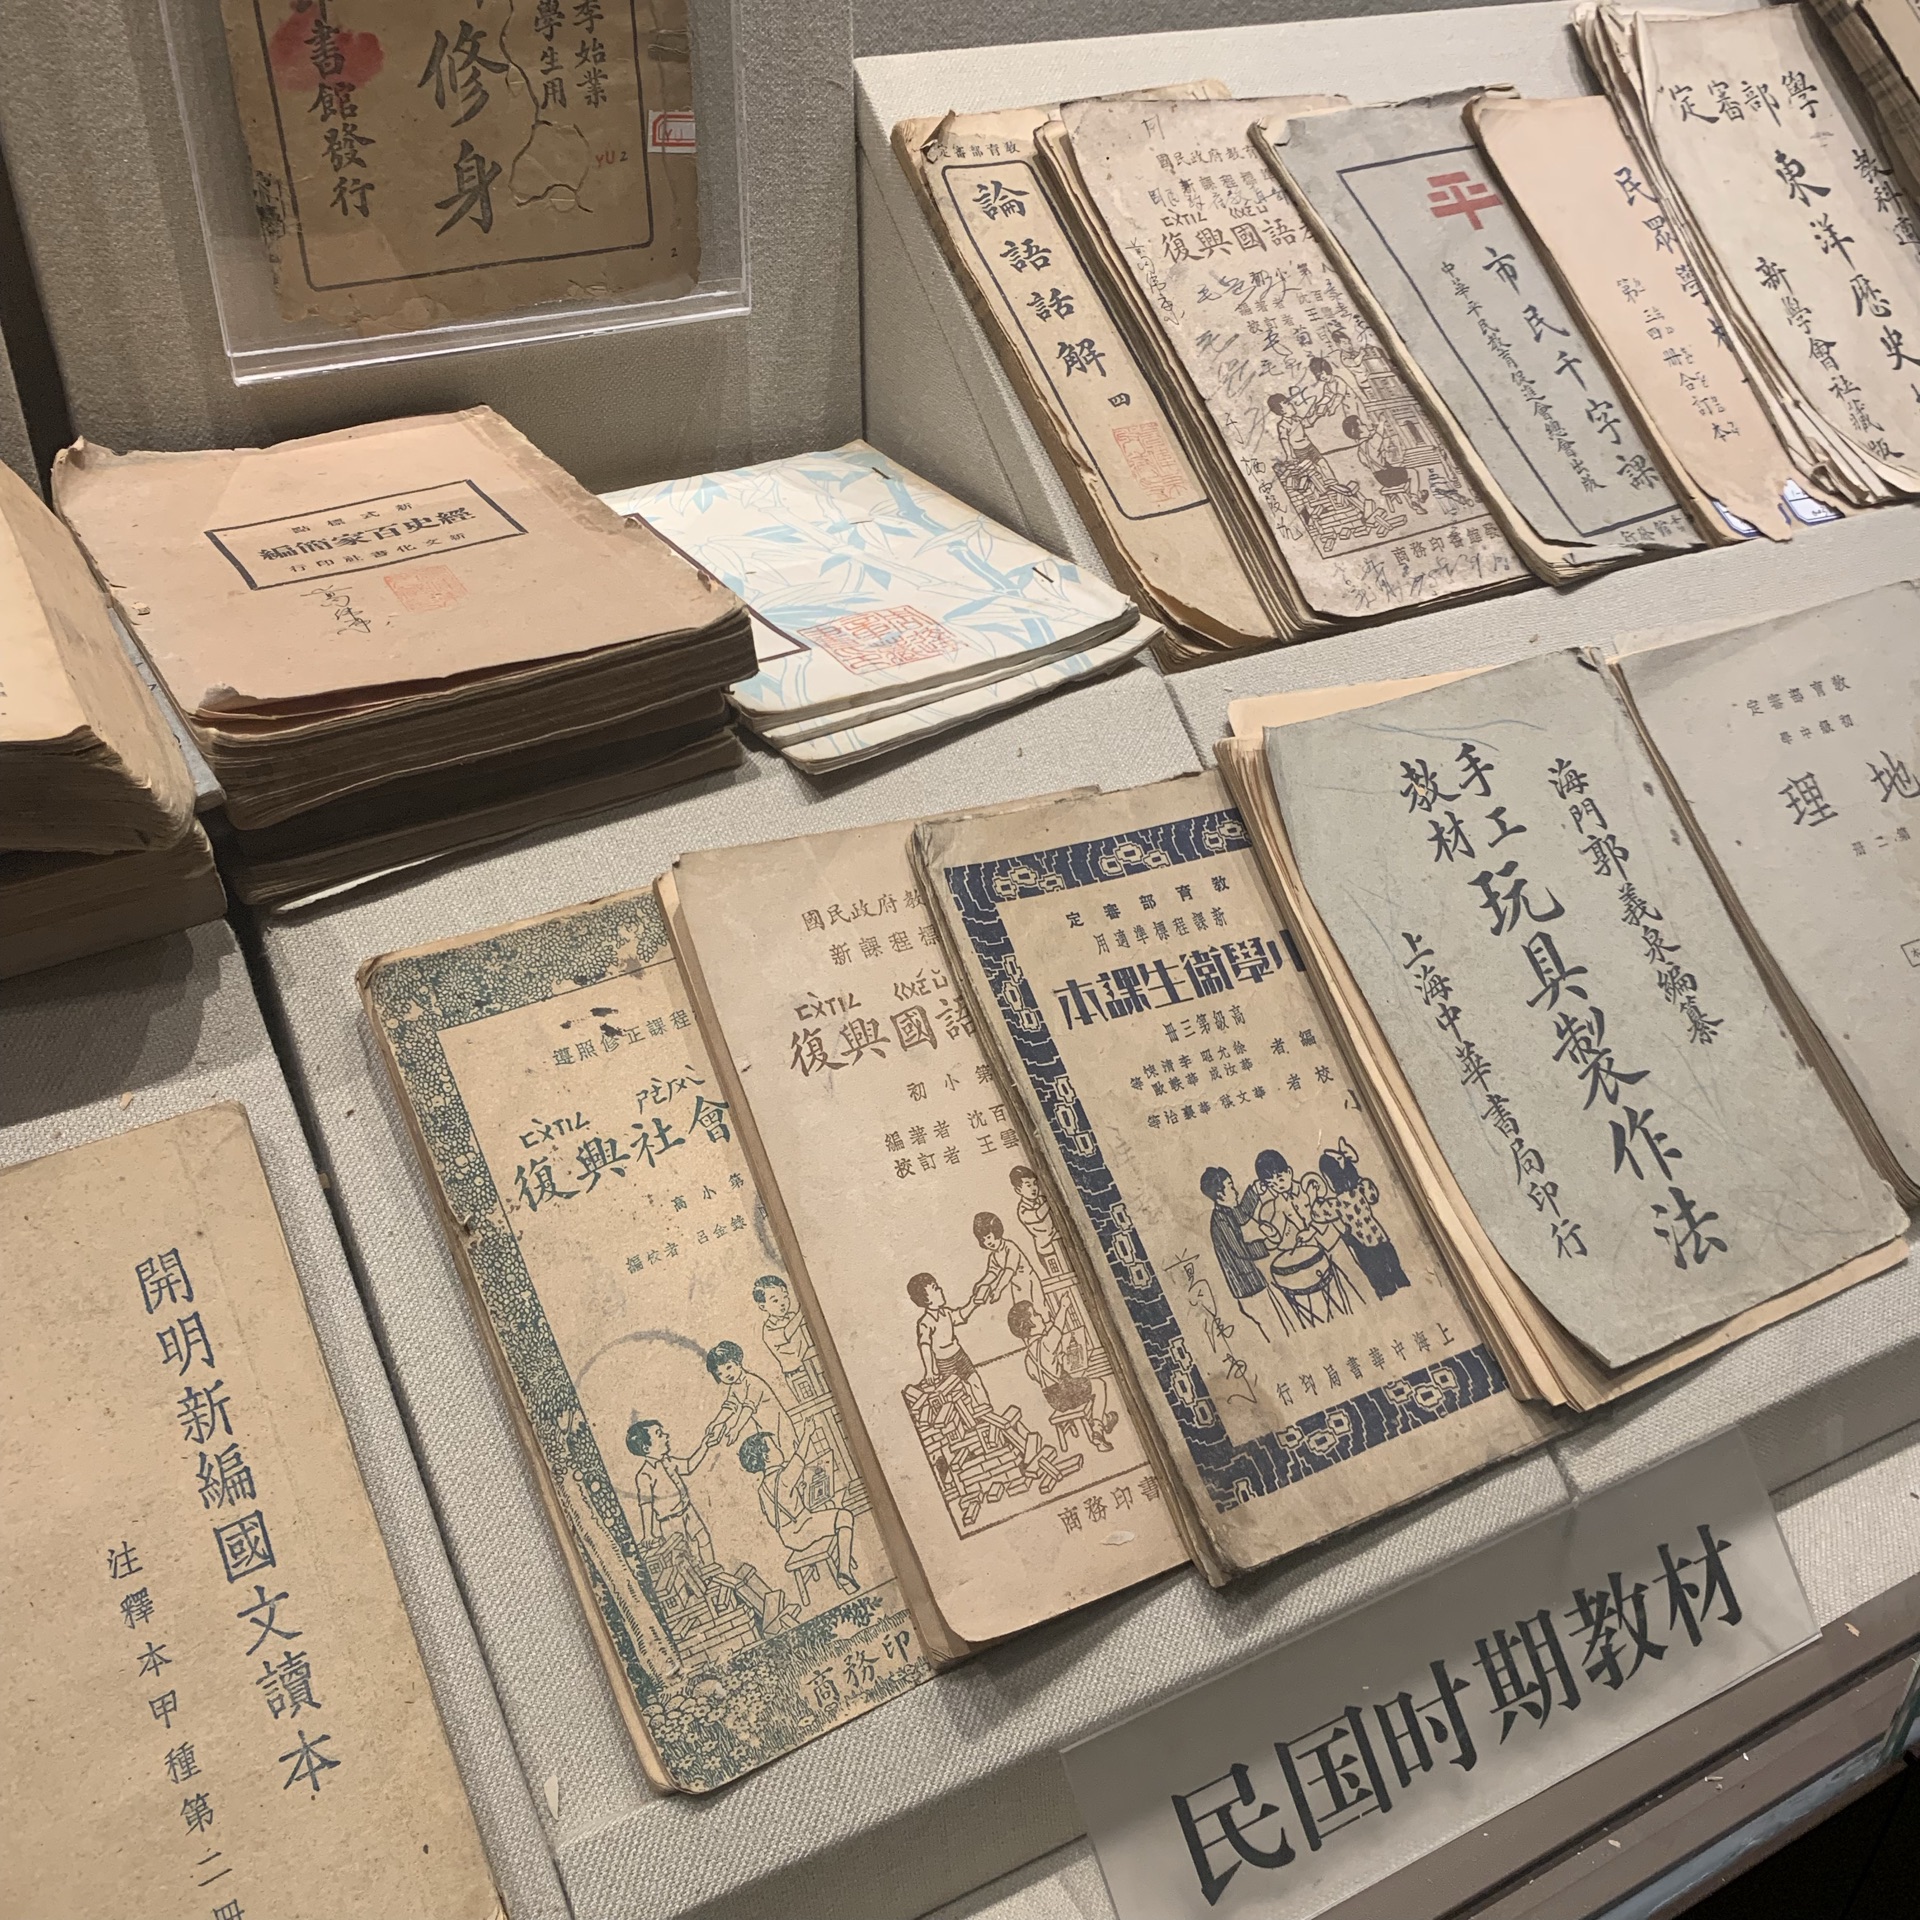 季始業
學生用
修身
書館發行
YU2
2
新式標點
經史百家簡編
新文化書社印行
教育部審定
論語話解
四
國民政府教育
新課程標
ㄈㄨˋㄒㄧㄥ ㄍㄨㄛˊㄩˇ
復興國語
商務印書館發
平
市民千字課
中華平民教育促進會總會出版
民眾學校
合訂本
學部審定
東洋歷史
新學會社藏版
開明新編國文讀本
注釋本甲種第二冊
遵照修正課程
ㄈㄨˋㄒㄧㄥ ㄕㄜˋㄏㄨㄟˋ
復興社會
高小第
編校者 呂金錄
商務印
國民政府教
新課程標
ㄈㄨˋㄒㄧㄥ ㄍㄨㄛˊㄩˇ
復興國語
初小第
編著者 沈百
校訂者 王雲
商務印書
教育部審定
新課程標準適用
小學衞生課本
高級第三冊
編者
校者
上海中華書局印行
海門郭義泉編纂
手工
教材
玩具製作法
上海中華書局印行
教育部審定
初級中學
地理
第二冊
民国时期教材